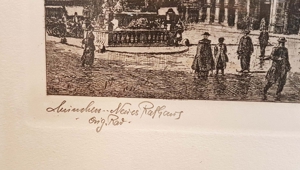 München - Neues Rathaus
- Orig. Rad. -